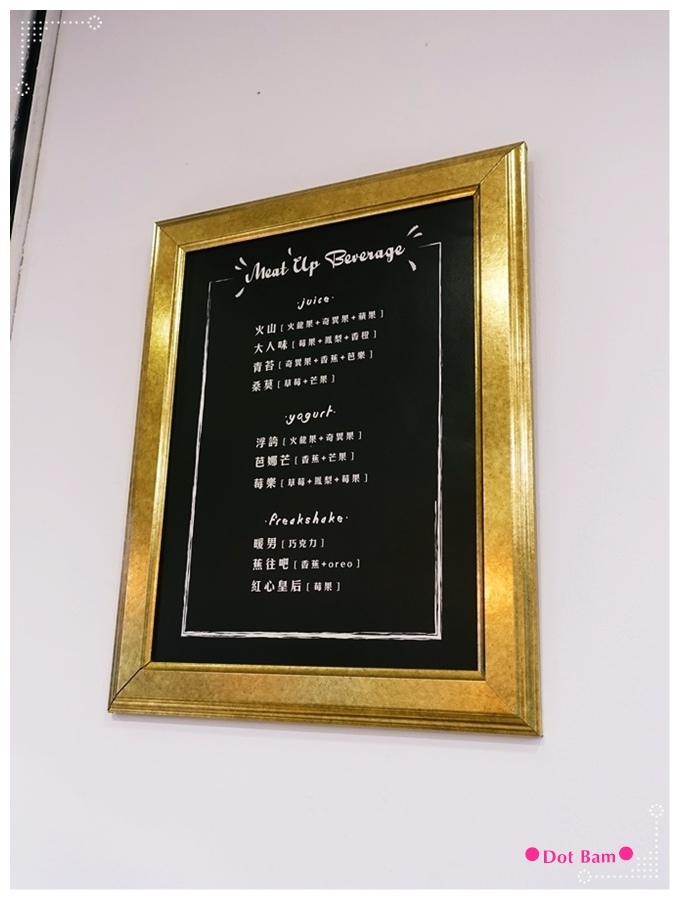 Meat Up Beverage
·juice·
火山 [ 火龍果+奇異果+蘋果 ]
大人味 [ 莓果+鳳梨+香橙 ]
青苔 [ 奇異果+香蕉+芭樂 ]
桑莫 [ 草莓+芒果 ]
·yogurt·
浮誇 [ 火龍果+奇異果 ]
芭娜芒 [ 香蕉+芒果 ]
莓樂 [ 草莓+鳳梨+莓果 ]
·freakshake·
暖男 [ 巧克力 ]
蕉往吧 [ 香蕉+oreo ]
紅心皇后 [ 莓果 ]
●Dot Bam●